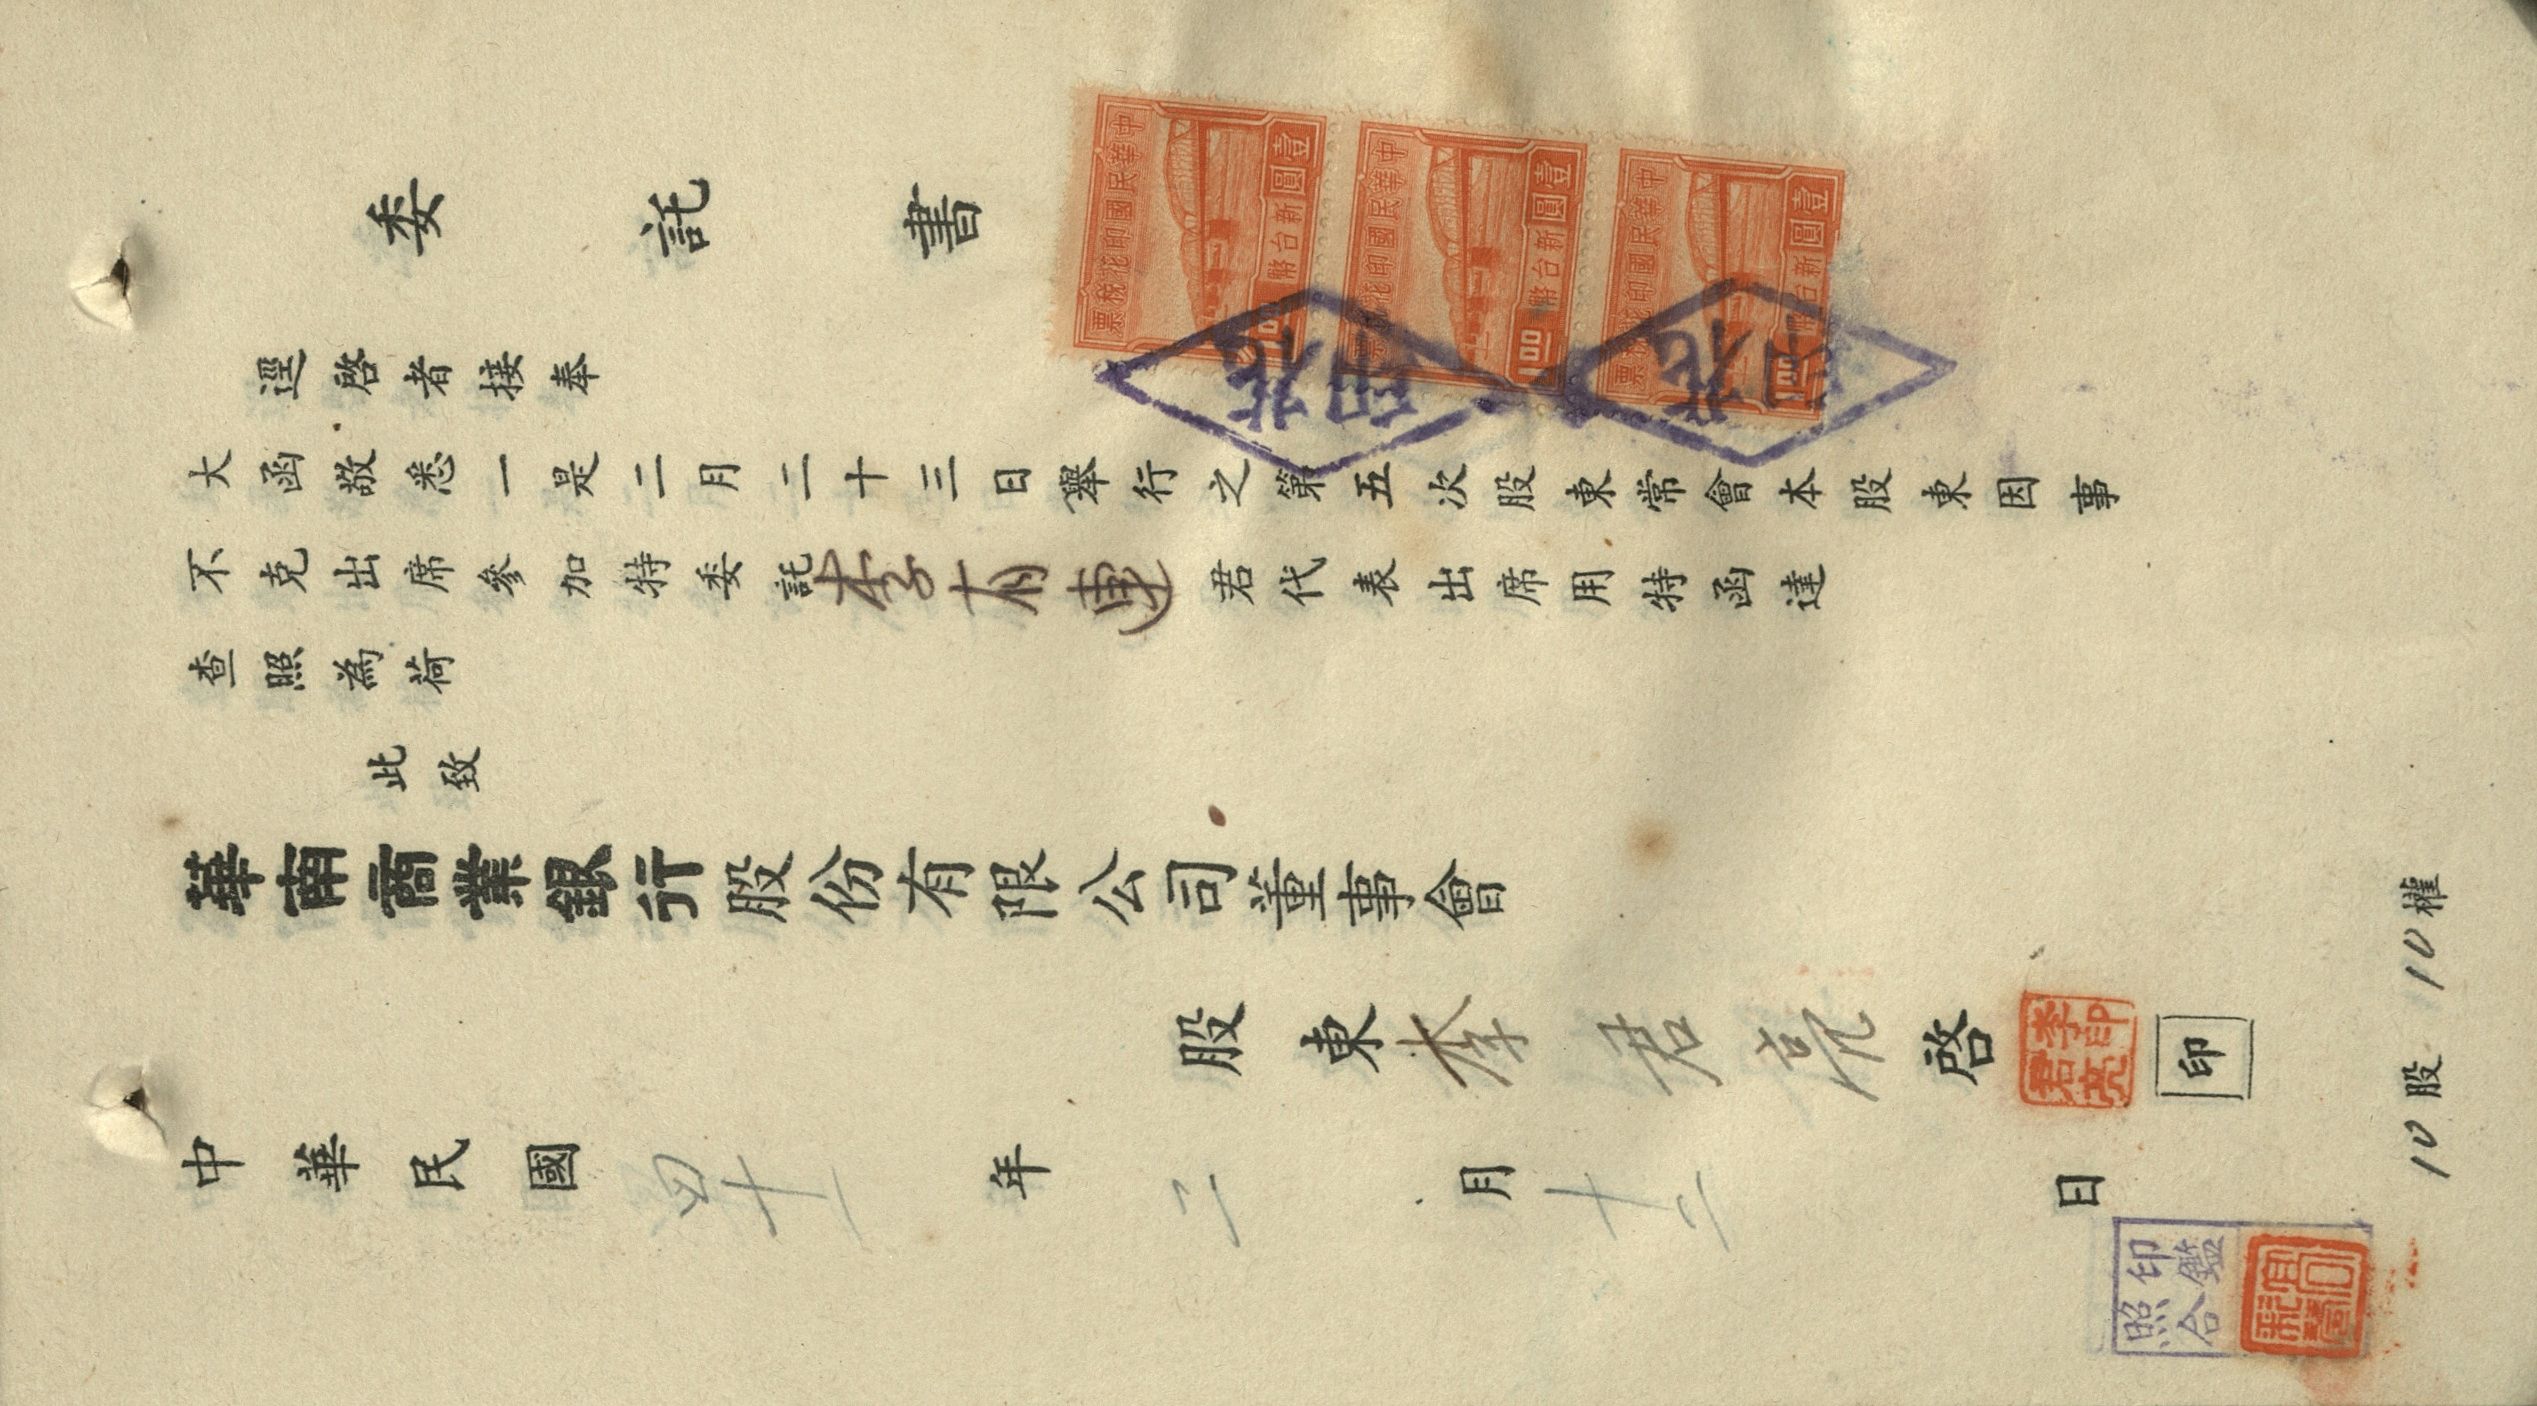 委託書
逕啓者接奉
大函敬悉一是二月二十三日舉行之第五次股東常會本股東因事
不克出席參加特委託李有連君代表出席用特函達
查照為荷
此致
華南商業銀行股份有限公司董事會
股東李君亮啓
李君亮印
印
中華民國四十一年二月十二日
10股 10權
印鑑
照合
中華民國印花稅票
壹圓
新台幣
1.00
中華民國印花稅票
壹圓
新台幣
1.00
中華民國印花稅票
壹圓
新台幣
1.00
印花
印花